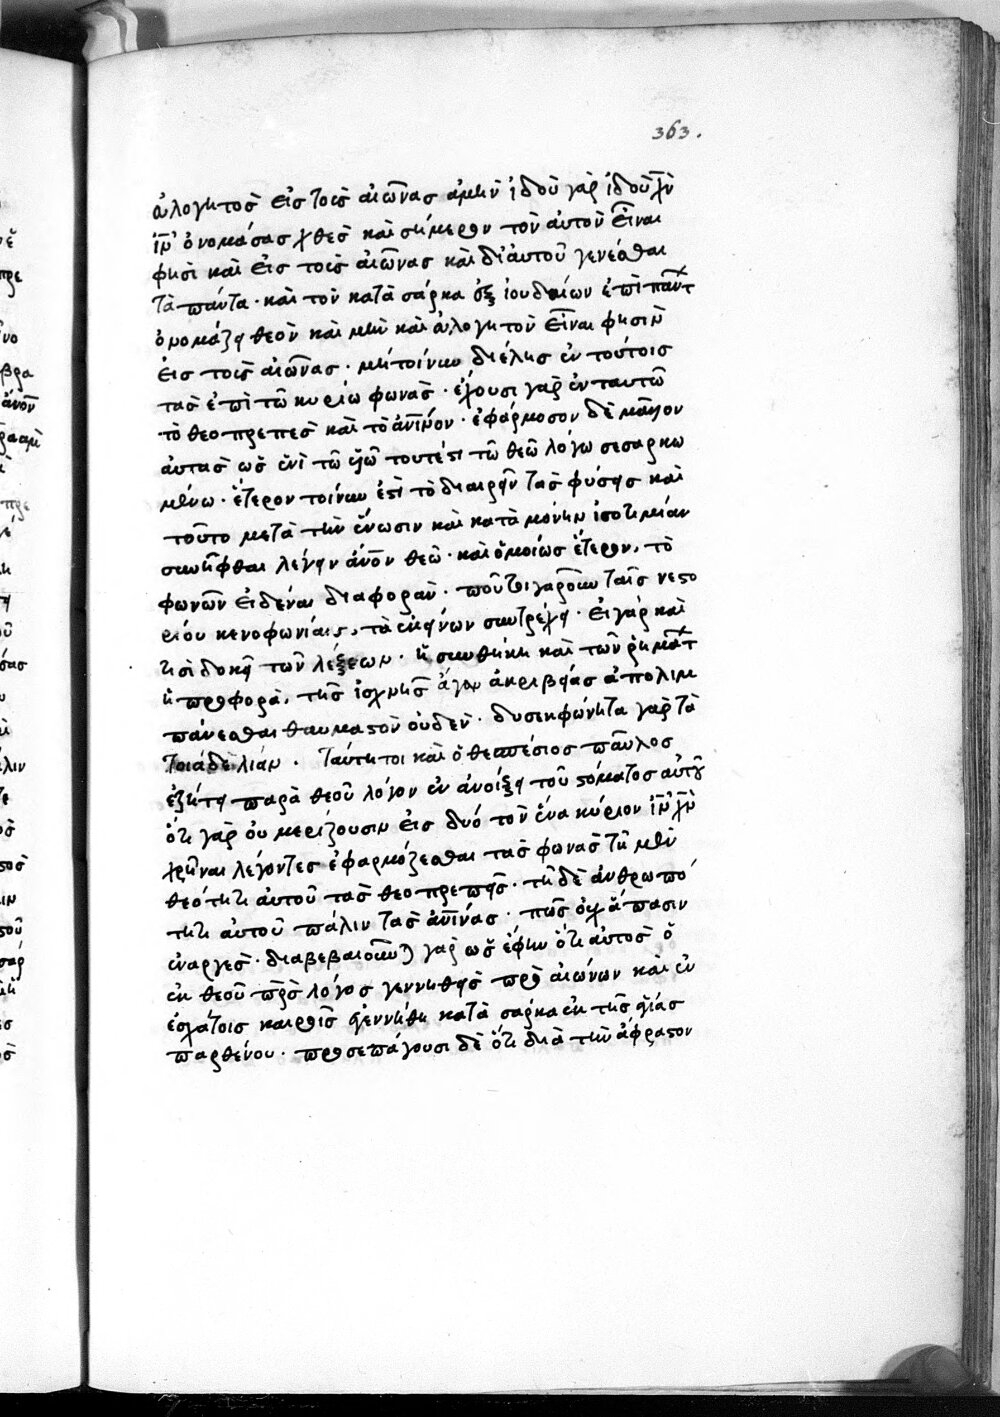 363.
εὐλογητὸς εἰς τοὺς αἰῶνας ἀμήν· ἰδοὺ γὰρ ἰδοὺ χ̅ν̅
ι̅ν̅ ὀνομάσας χθὲς καὶ σήμερον τὸν αὐτὸν εἶναι
φησὶ καὶ εἰς τοὺς αἰῶνας καὶ δι' αὐτοῦ γενέσθαι
τὰ πάντα· καὶ τὸν κατὰ σάρκα ἐξ ἰουδαίων ἐπὶ πάντ
ὀνομάζει θεὸν καὶ μὴν καὶ εὐλογητὸν εἶναι φησὶν
εἰς τοὺς αἰῶνας· μὴ τοίνυν διέλης ἐν τούτοις
τὰς ἐπὶ τῶ κυρίω φωνάς· ἔχουσι γὰρ ἐν ταυτῶ
τὸ θεοπρεπὲς καὶ τὸ ἀν̅ινον· ἐφάρμοσον δὲ μᾶλλον
αὐτὰς ὡς ἑνὶ τῶ χ̅ω̅ τουτέστι τῶ θεῶ λόγω σεσαρκω
μένω· ἕτερον τοίνυν ἐστὶ τὸ διαιρεῖν τὰς φύσεις καὶ
τοῦτο μετὰ τὴν ἕνωσιν καὶ κατὰ μόνην ἰσοτιμίαν
συνῆφθαι λέγειν ἄν̅ον θεῶ· καὶ ὁμοίως ἕτερον, τὸ
φωνῶν εἰδέναι διαφοράν· ποῦ τοιγαροῦν ταῖς νεστο
ρίου κενοφωνίαις, τὰ ἐκείνων συντρέχει· εἰ γὰρ καὶ
τισὶ δοκεῖ τῶν λέξεων· ἡ συνθήκη καὶ τῶν ῥημάτ
ἡ προφορά, τῆς ἰσχνῆς ἄγαν ἀκριβείας ἀπολιμ
πάνεσθαι θαυμαστὸν οὐδέν· δυσεκφώνητα γὰρ τὰ
τοιάδε λίαν. ταύτητοι καὶ ὁ θεσπέσιος παῦλος
ἐζήτει παρὰ θεοῦ λόγον ἐν ἀνοίξει τοῦ στόματος αὐτοῦ
ὅτι γὰρ οὐ μερίζουσιν εἰς δύο τὸν ἕνα κύριον ι̅ν̅ χ̅ν̅
χρῆναι λέγοντες ἐφαρμόζεσθαι τὰς φωνὰς τῆ μὲν
θεότητι αὐτοῦ τὰς θεοπρεπεῖς· τῆ δὲ ἀνθρωπό
τητι αὐτοῦ πάλιν τὰς ἀν̅ίνας· πῶς οὐχ ἅπασιν
ἐναργές· διαβεβαιοῦνται γὰρ ὡς ἔφην ὅτι αὐτὸς ὁ
ἐκ θεοῦ π̅ρ̅ς̅ λόγος γεννηθεὶς πρὸ αἰώνων καὶ ἐν
ἐσχάτοις καιροῖς γεννήθη κατὰ σάρκα ἐκ τῆς ἁγίας
παρθένου· προσεπάγουσι δὲ ὅτι διὰ τὴν ἄφραστον